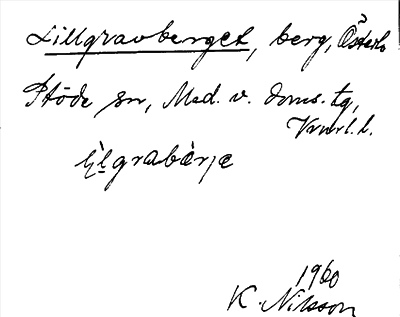 Lillgravberget, berg, Österlo
Stöde sn, Med. v. doms. tg,
Vnrl. l.
lìlgrabær̀jæ
1960
K. Nilsson